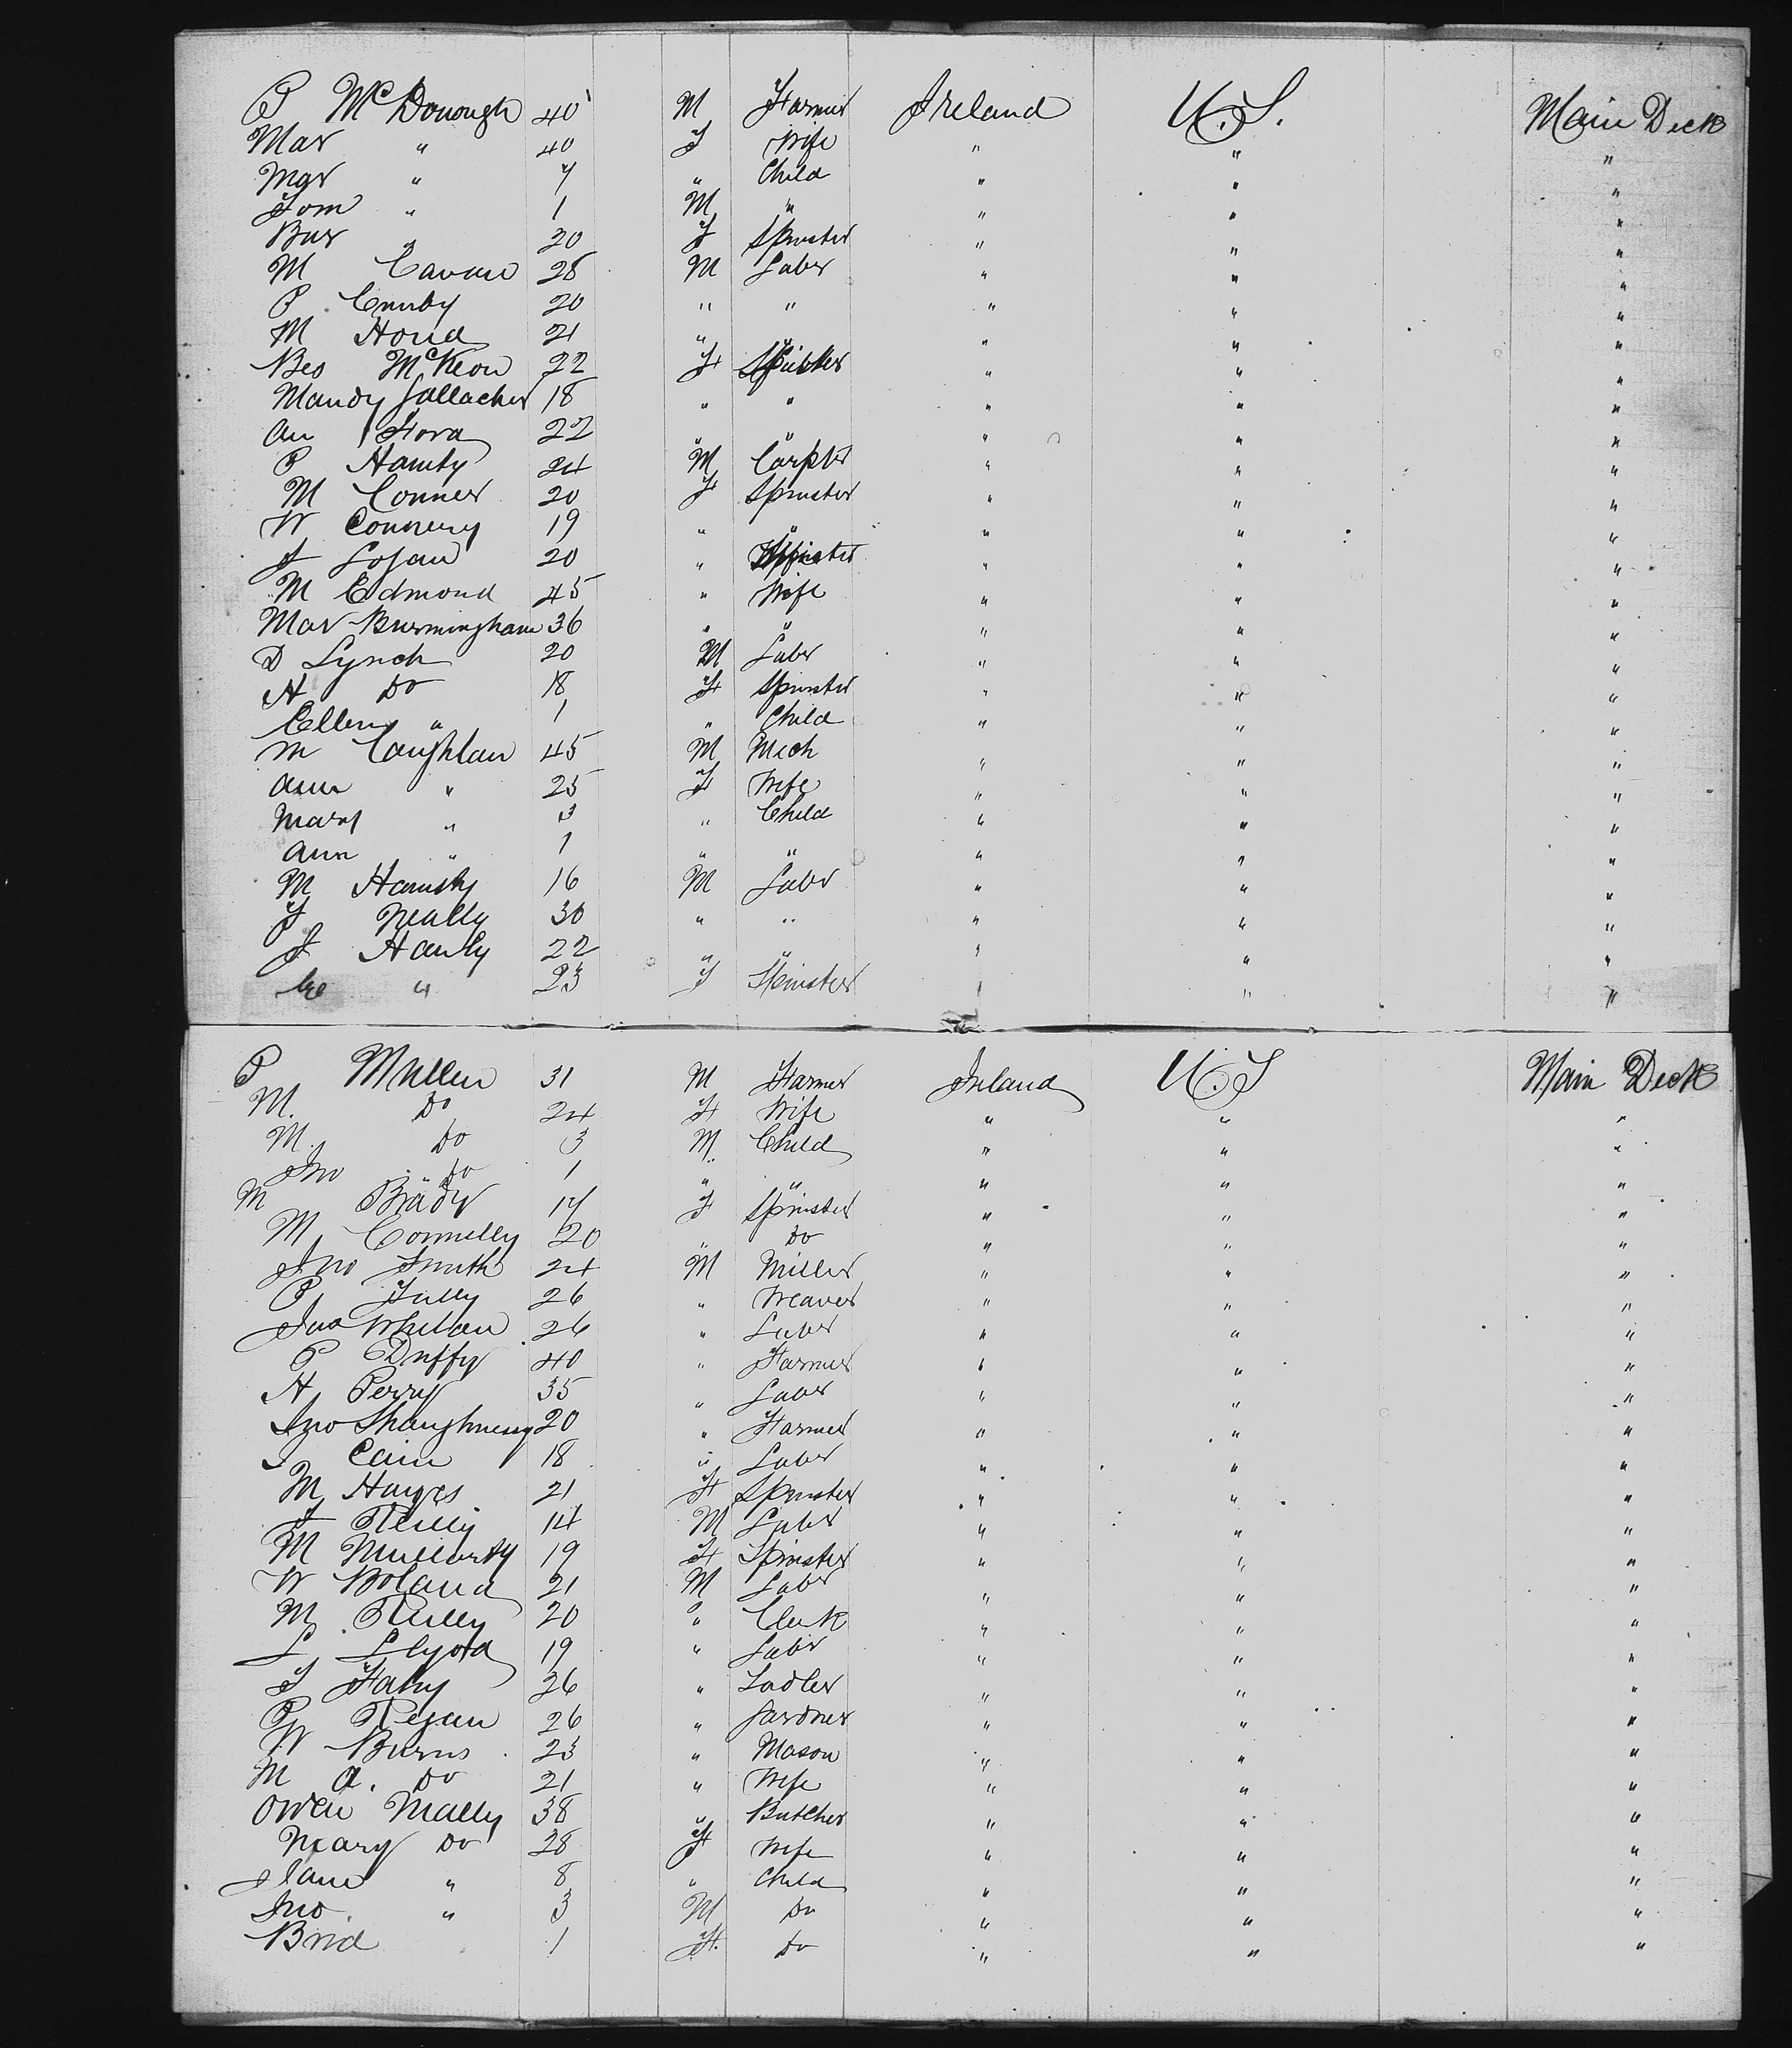 P McDonough 40 M Farmer Ireland U.S. Main Deck
Mar " 40 F Wife " " "
Mgr " 7 " Child " " "
Tom " 1 M " " " "
Bur " 20 F Spinster " " "
M Cavan 28 M Labr " " "
P 20 " " " " "
M 21 " " " " "
Bes McKeon 22 F " " "
Mandy Gallacher 18 " " " " "
An Hora 22 " " " " "
P Hamty 24 M Carptr " " "
M Conner 20 F Spinster " " "
W Connery 19 " " " " "
J Logan 20 " " " "
M Edmond 45 " Wife " " "
Mar Burmingham 36 " " " " "
D Lynch 20 M Labr " " "
H Do 18 F Spinster " " "
Ellen " 1 " Child " " "
M Coughlan 45 M Mech " " "
Ann " 25 F Wife " " "
Mary " 3 " Child " " "
Ann " 1 " " " " "
M 16 M Labr " " "
T Neally 30 " " " " "
J Hanly 22 " " " " "
" 23 F Spinster " " "
P Mullen 31 M Farmer Ireland U.S Main Deck
M. Do 24 F Wife " " "
M. Do 3 M. Child " " "
Jno Do 1 " " " " "
M Brady 17 F Spinster " " "
M Connelly 20 " Do " " "
Jno Smith 24 M Miller " " "
P Tully 26 " Weaver " " "
Jas Whelan 26 " Labr " " "
P Duffy 40 " Farmer " " "
H Perry 35 " Labr " " "
Jno Shaughnessy 20 " Farmer " " "
J Cain 18 " Labr " " "
M Hayes 21 F Spinster " " "
J Reilly 14 M Labr " " "
M 19 F Spinster " " "
W Boland 21 M Labr " " "
M Reilly 20 " Clerk " " "
L Llyod 19 " Labr " " "
T Fahy 26 " Sadler " " "
P Regan 26 " Gardner " " "
W Burns 23 " Mason " " "
M A. Do 21 " Wife " " "
Owen Mally 38 " Butcher " " "
Mary Do 28 F Wife " " "
Jane " 8 " Child " " "
Jno " 3 M Do " " "
Brid 1 F. Do " " "